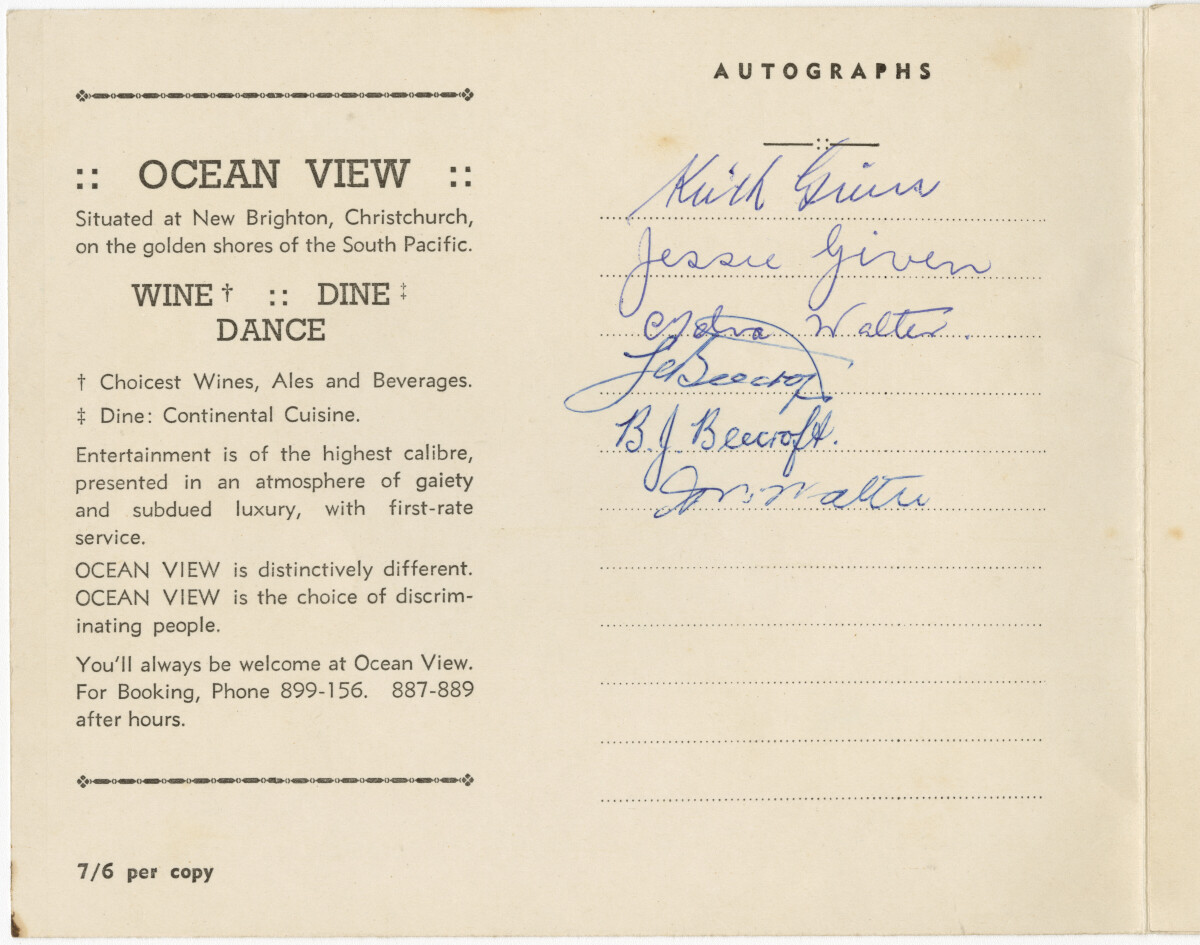 :: OCEAN VIEW ::
Situated at New Brighton, Christchurch,
on the golden shores of the South Pacific.
WINE † :: DINE ‡
DANCE
† Choicest Wines, Ales and Beverages.
‡ Dine: Continental Cuisine.
Entertainment is of the highest calibre,
presented in an atmosphere of gaiety
and subdued luxury, with first-rate
service.
OCEAN VIEW is distinctively different.
OCEAN VIEW is the choice of discrim-
inating people.
You'll always be welcome at Ocean View.
For Booking, Phone 899-156. 887-889
after hours.
7/6 per copy
AUTOGRAPHS
Keith Given
Jessie Given
Walter.
Beecroft
B. J. Beecroft.
Walter